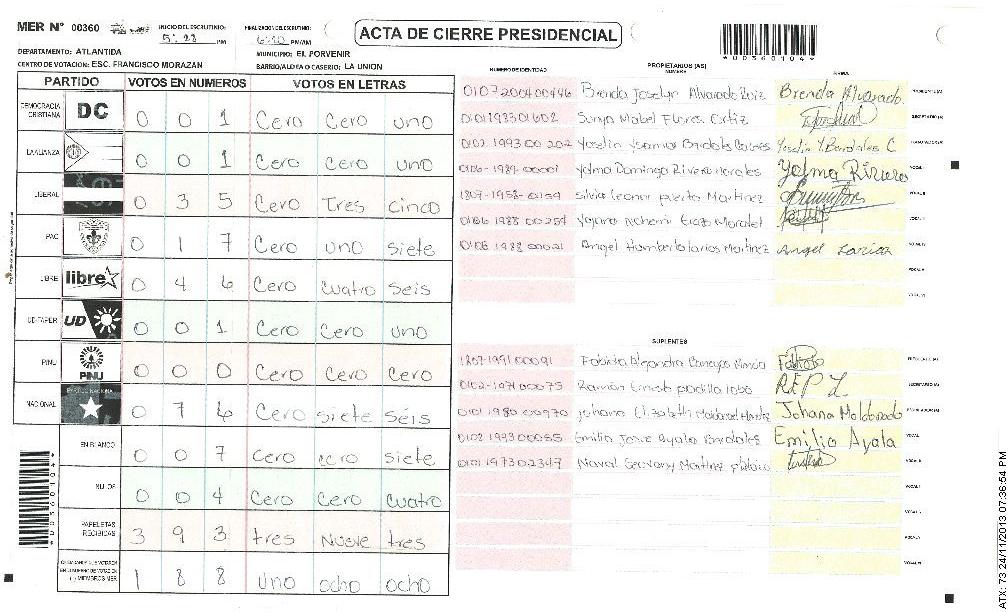 MER N° 00360
INICIO DEL ESCRUTINIO: 5:28 PM
FINALIZACION DEL ESCRUTINIO: PM/AM
ACTA DE CIERRE PRESIDENCIAL
*00360104*
DEPARTAMENTO: ATLANTIDA
MUNICIPIO: EL PORVENIR
CENTRO DE VOTACION: ESC. FRANCISCO MORAZAN
BARRIO/ALDEA O CASERIO: LA UNION
PARTIDO VOTOS EN NUMEROS VOTOS EN LETRAS
DEMOCRACIA CRISTIANA DC 0 0 1 Cero Cero uno
LA ALIANZA 0 0 1 Cero Cero uno
LIBERAL 0 3 5 Cero Tres cinco
PAC 0 1 7 Cero uno siete
LIBRE libre 0 4 6 Cero cuatro seis
UD-FAPER UD 0 0 1 Cero Cero uno
PINU PINU 0 0 0 Cero Cero Cero
NACIONAL PARTIDO NACIONAL 0 7 6 Cero siete seis
EN BLANCO 0 0 7 Cero cero siete
NULOS 0 0 4 Cero Cero Cuatro
PAPELETAS RECIBIDAS 3 9 3 tres Nueve tres
1 8 8 uno ocho ocho
*00360104*
NUMERO DE IDENTIDAD PROPIETARIOS (AS) NOMBRE FIRMA
0107200400446 Brenda Joselyn Alvarado Ruiz Brenda Alvarado. PRESIDENTE (A)
0101198301602 Sonya Mabel Flores Ortiz SECRETARIO (A)
0102 1993 00 202 Yoselin Yesenia Bardales Yoselin Y. Bardales C
Yolma Domingo Rivera Morales Yolma Rivera
1807-1958-0154 Silvia Leonor puerto Martinez
0106 1988 00254
0108 1988 00021 Angel Humberto Larios Martinez Angel Larios
SUPLENTES
1807-1991 00091 Fabiola Alejandra Fabiola PRESIDENTE (A)
0102-1971 00075 Ramón Ernesto padilla R.E.P L. SECRETARIO (A)
0101 1980 00970 Johana Elizabeth Maldonado Johana Maldonado
0102 1993 00055 Emilia Ayala Bardales Emilia Ayala VOCAL
0101 1973 02347 Geovany Martinez
ATX: 73 24/11/2013 07:36:54 PM